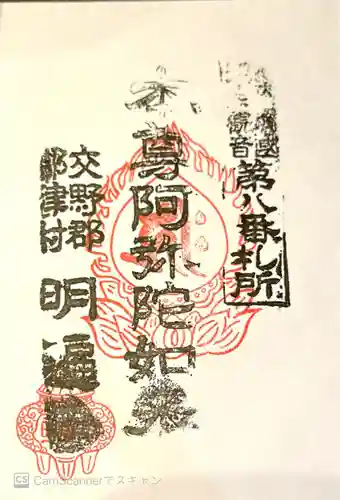 観音
第八番札所
本尊阿弥陀如来
交野郡
津村
明遍
CS CamScannerでスキャン